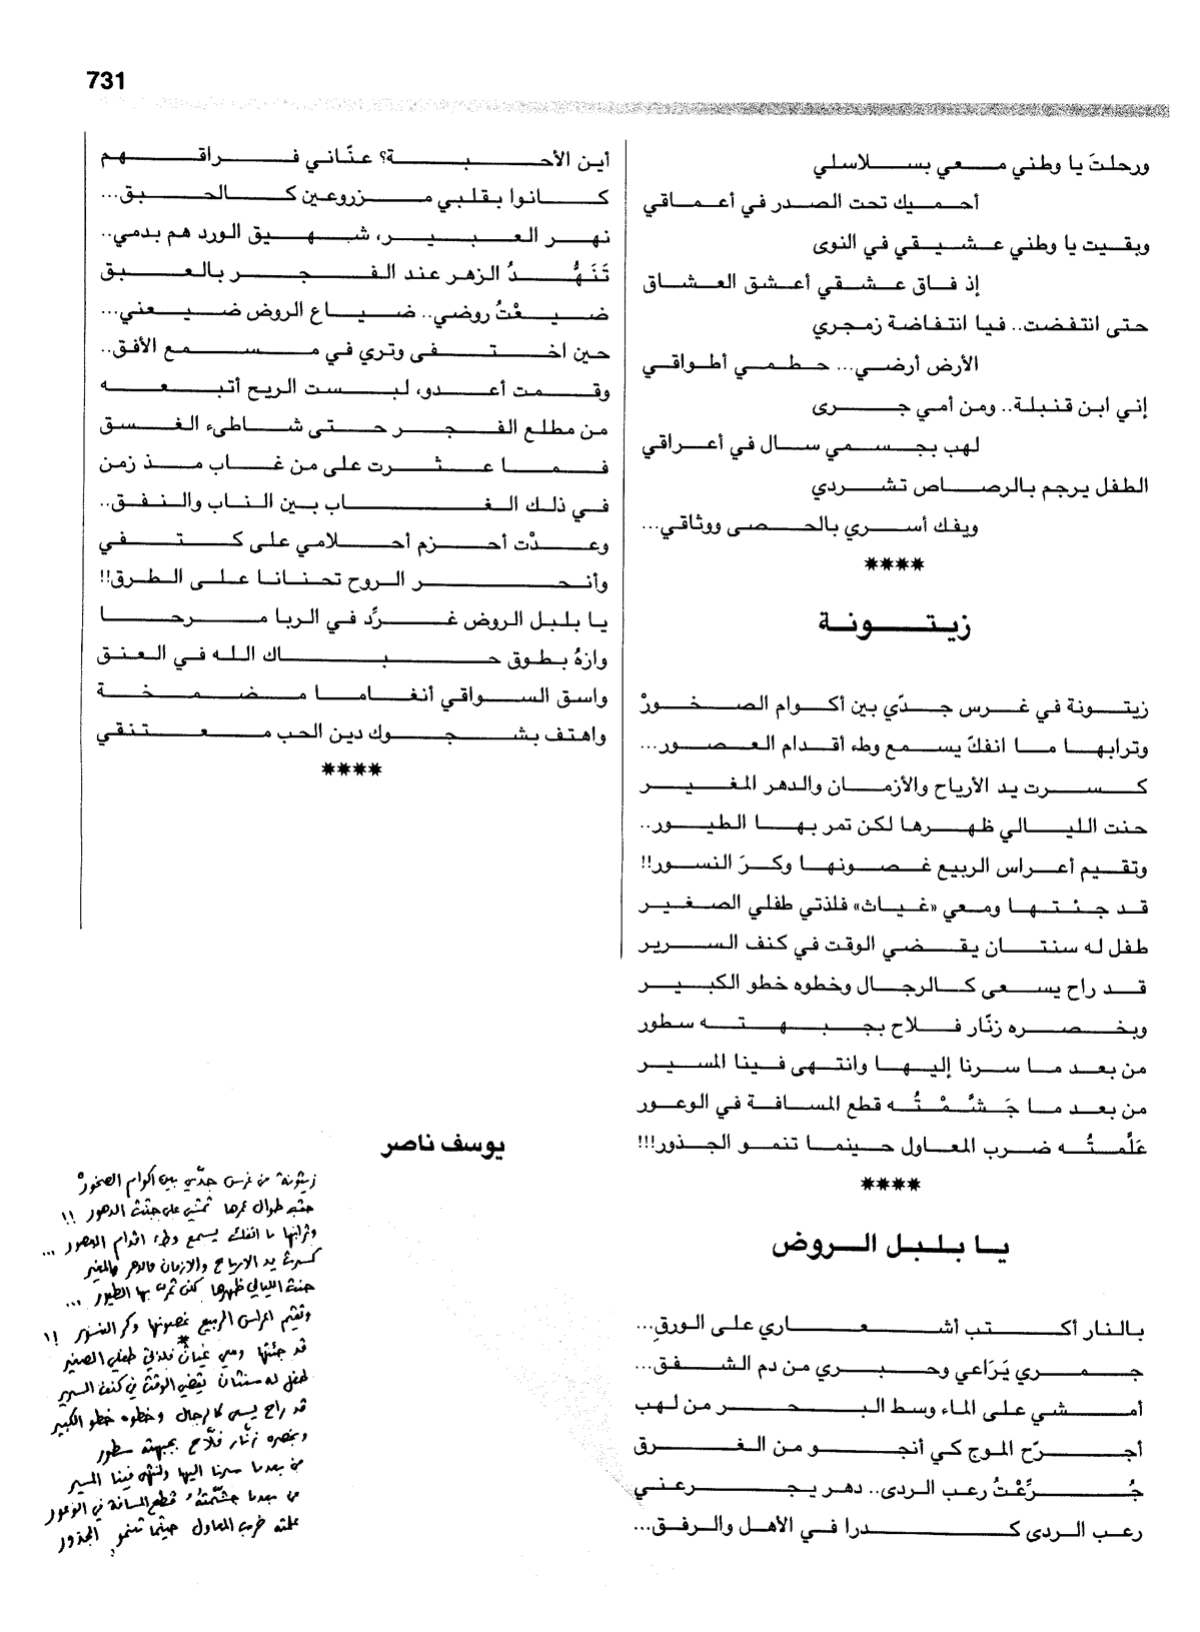 731
ورحلتَ يا وطني معي بسلاسلي
أحميك تحت الصدر في أعماقي
وبقيت يا وطني عشيقي في النوى
إذ فاق عشقي أعشق العشاق
حتى انتفضت.. فيا انتفاضة زمجري
الأرض أرضي... حطمي أطواقي
إني ابن قنبلة.. ومن أمي جرى
لهب بجسمي سال في أعراقي
الطفل يرجم بالرصاص تشردي
ويفك أسري بالحصى ووثاقي...
****
زيتونة
زيتونة في غرس جدّي بين أكوام الصخورْ
وترابها ما انفكّ يسمع وطء أقدام العصور...
كسرت يد الأرياح والأزمان والدهر المغير
حنت الليالي ظهرها لكن تمر بها الطيور..
وتقيم أعراس الربيع غصونها وكرَ النسور!!
قد جئتها ومعي «غياث» فلذتي طفلي الصغير
طفل له سنتان يقضي الوقت في كنف السرير
قد راح يسعى كالرجال وخطوه خطو الكبير
وبخصره زنّار فلاح بجبهته سطور
من بعد ما سرنا إليها وانتهى فينا المسير
من بعد ما جَشَّمْتُه قطع المسافة في الوعور
عَلَّمتُه ضرب المعاول حينما تنمو الجذور!!!
****
يا بلبل الروض
بالنار أكتب أشعاري على الورقِ...
جمري يَرَاعي وحبري من دم الشفق...
أمشي على الماء وسط البحر من لهب
أجرّح الموج كي أنجو من الغرق
جُرِّعْتُ رعب الردى.. دهر يجرعني
رعب الردى كدرا في الأهل والرفق...
أين الأحبة؟ عنّاني فراقهم
كانوا بقلبي مزروعين كالحبق...
نهر العبير، شهيق الورد هم بدمي..
تَنَهُّدُ الزهر عند الفجر بالعبق
ضيعْتُ روضي.. ضياع الروض ضيعني...
حين اختفى وتري في مسمع الأفق..
وقمت أعدو، لبست الريح أتبعه
من مطلع الفجر حتى شاطىء الغسق
فما عثرت على من غاب مذ زمن
في ذلك الغاب بين الناب والنفق..
وعدْت أحزم أحلامي على كتفي
وأنحر الروح تحنانا على الطرق!!
يا بلبل الروض غرِّد في الربا مرحا
وازهُ بطوق حباك الله في العنق
واسق السواقي أنغاما مضمخة
واهتف بشجوك دين الحب معتنقي
****
يوسف ناصر
زيتونة من غرس جدّي بين اكوام الصخورْ
طوال عمرها تمشي على جثث الدهور !!
وترابها ما انفك يسمع وطء اقدام العصور ...
كسرت يد الارياح والازمان والدهر المغير
حنت الليالي ظهرها لكن تمرّ بها الطيور ...
وتقيم اعراس الربيع غصونها وكر النسور !!
قد جئتها ومعي غياث فلذتي طفلي الصغير
طفل له سنتان يقضي الوقت في كنف السرير
قد راح يسعى كالرجال وخطوه خطو الكبير
وبخصره زنّار فلّاح بجبهته سطور
من بعدما سرنا اليها وانتهى فينا المسير
من بعدما جشّمتهُ قطع المسافة في الوعور
علمته ضرب المعاول حينما تنمو الجذور